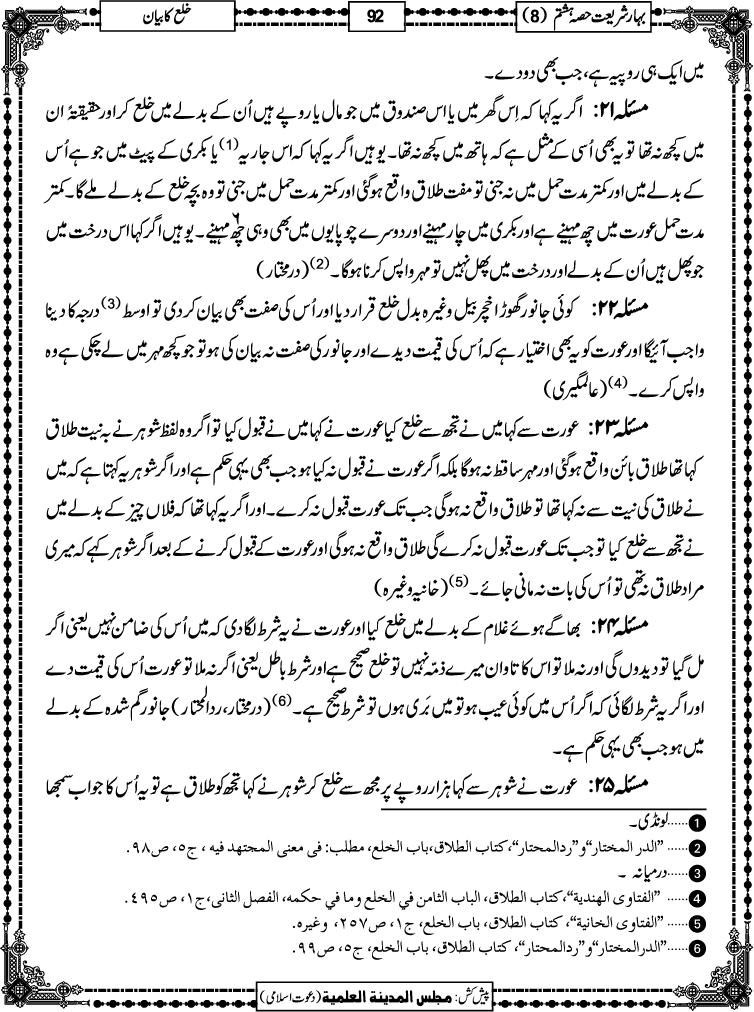 بہارشریعت حصہ ہشتم (8)
92
خلع کا بیان
میں ایک ہی روپیہ ہے، جب بھی دو دے۔
مسئلہ ۲۱: اگر یہ کہا کہ اِس گھر میں یا اس صندوق میں جو مال یا روپے ہیں اُن کے بدلے میں خلع کر اور حقیقۃً ان
میں کچھ نہ تھا تو یہ بھی اُسی کے مثل ہے کہ ہاتھ میں کچھ نہ تھا۔ یوہیں اگر یہ کہا کہ اس جاریہ(1) یا بکری کے پیٹ میں جو ہے اُس
کے بدلے میں اور کمتر مدت حمل میں نہ جنی تو مفت طلاق واقع ہوگئی اور کمتر مدت حمل میں جنی تو وہ بچہ خلع کے بدلے ملے گا۔ کمتر
مدت حمل عورت میں چھ مہینے ہے اور بکری میں چار مہینے اور دوسرے چوپایوں میں بھی وہی چھ۶ مہینے۔ یوہیں اگر کہا اس درخت میں
جو پھل ہیں اُن کے بدلے اور درخت میں پھل نہیں تو مہر واپس کرنا ہوگا۔(2) (درمختار)
مسئلہ ۲۲: کوئی جانور گھوڑا خچر بیل وغیرہ بدل خلع قرار دیا اور اُس کی صفت بھی بیان کر دی تو اوسط(3) درجہ کا دینا
واجب آئیگا اور عورت کو یہ بھی اختیار ہے کہ اُس کی قیمت دیدے اور جانور کی صفت نہ بیان کی ہو تو جو کچھ مہر میں لے چکی ہے وہ
واپس کرے۔(4) (عالمگیری)
مسئلہ ۲۳: عورت سے کہا میں نے تجھ سے خلع کیا عورت نے کہا میں نے قبول کیا تو اگر وہ لفظ شوہر نے بہ نیت طلاق
کہا تھا طلاق بائن واقع ہوگئی اور مہر ساقط نہ ہوگا بلکہ اگر عورت نے قبول نہ کیا ہو جب بھی یہی حکم ہے اور اگر شوہر یہ کہتا ہے کہ میں
نے طلاق کی نیت سے نہ کہا تھا تو طلاق واقع نہ ہوگی جب تک عورت قبول نہ کرے۔ اور اگر یہ کہا تھا کہ فلاں چیز کے بدلے میں
نے تجھ سے خلع کیا تو جب تک عورت قبول نہ کرے گی طلاق واقع نہ ہوگی اور عورت کے قبول کرنے کے بعد اگر شوہر کہے کہ میری
مراد طلاق نہ تھی تو اُس کی بات نہ مانی جائے۔(5) (خانیہ وغیرہ)
مسئلہ ۲۴: بھاگے ہوئے غلام کے بدلے میں خلع کیا اور عورت نے یہ شرط لگا دی کہ میں اُس کی ضامن نہیں یعنی اگر
مل گیا تو دیدوں گی اور نہ ملا تو اس کا تاوان میرے ذمّہ نہیں تو خلع صحیح ہے اور شرط باطل یعنی اگر نہ ملا تو عورت اُس کی قیمت دے
اور اگر یہ شرط لگائی کہ اگر اُس میں کوئی عیب ہو تو میں بَری ہوں تو شرط صحیح ہے۔(6) (درمختار، ردالمحتار) جانور گم شدہ کے بدلے
میں ہو جب بھی یہی حکم ہے۔
مسئلہ ۲۵: عورت نے شوہر سے کہا ہزار روپے پر مجھ سے خلع کر شوہر نے کہا تجھ کو طلاق ہے تو یہ اُس کا جواب سمجھا
1 ......لونڈی۔
2 ......"الدر المختار"و"ردالمحتار"،کتاب الطلاق،باب الخلع، مطلب: فی معنی المجتھد فیہ ، ج٥، ص٩٨.
3 ......درمیانہ ۔
4 ......"الفتاوی الھندیۃ"،کتاب الطلاق، الباب الثامن في الخلع وما في حکمہ، الفصل الثانی،ج١، ص٤٩٥.
5 ......"الفتاوی الخانیۃ"، کتاب الطلاق، باب الخلع، ج١، ص٢٥٧، وغیرہ.
6 ......"الدرالمختار"و"ردالمحتار"، کتاب الطلاق، باب الخلع، ج٥، ص٩٩.
پیش کش: مجلس المدینۃ العلمیۃ (دعوت اسلامی)